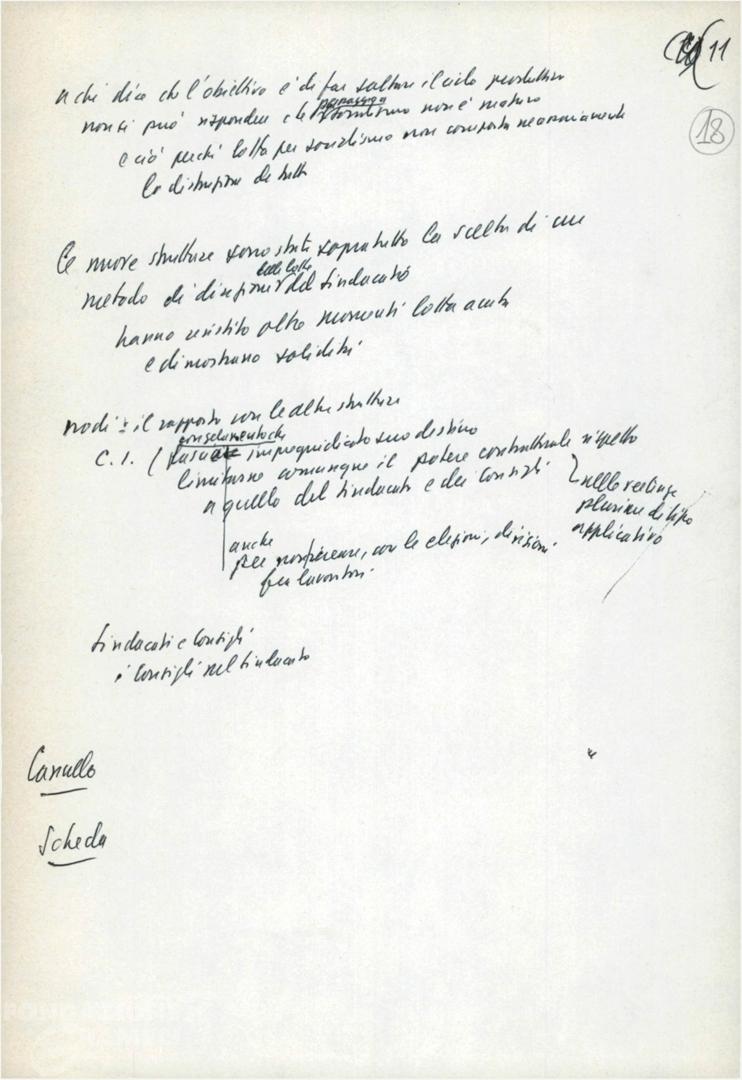 11
18
a chi dice che l'obiettivo è di far saltare il ciclo produttivo
non si può rispondere che non è maturo
e ciò perché lotta per socialismo non comporta necessariamente
la distruzione di tutto
Le nuove strutture sono state sopratutto la scelta di un
metodo di direzione delle lotte del sindacato
hanno resistito oltre momenti lotta acuta
e dimostrano solidità
nodi: il rapporto con le altre strutture
C.I. ( congelamento che impregiudicato suo destino
limitarne comunque il potere contrattuale rispetto
a quello del sindacato e dei Consigli
nelle vertenze
plurime di tipo
applicativo
anche
per non ricreare, con le elezioni, divisioni
fra lavoratori
Sindacati e Consigli
i Consigli nel Sindacato
Scheda